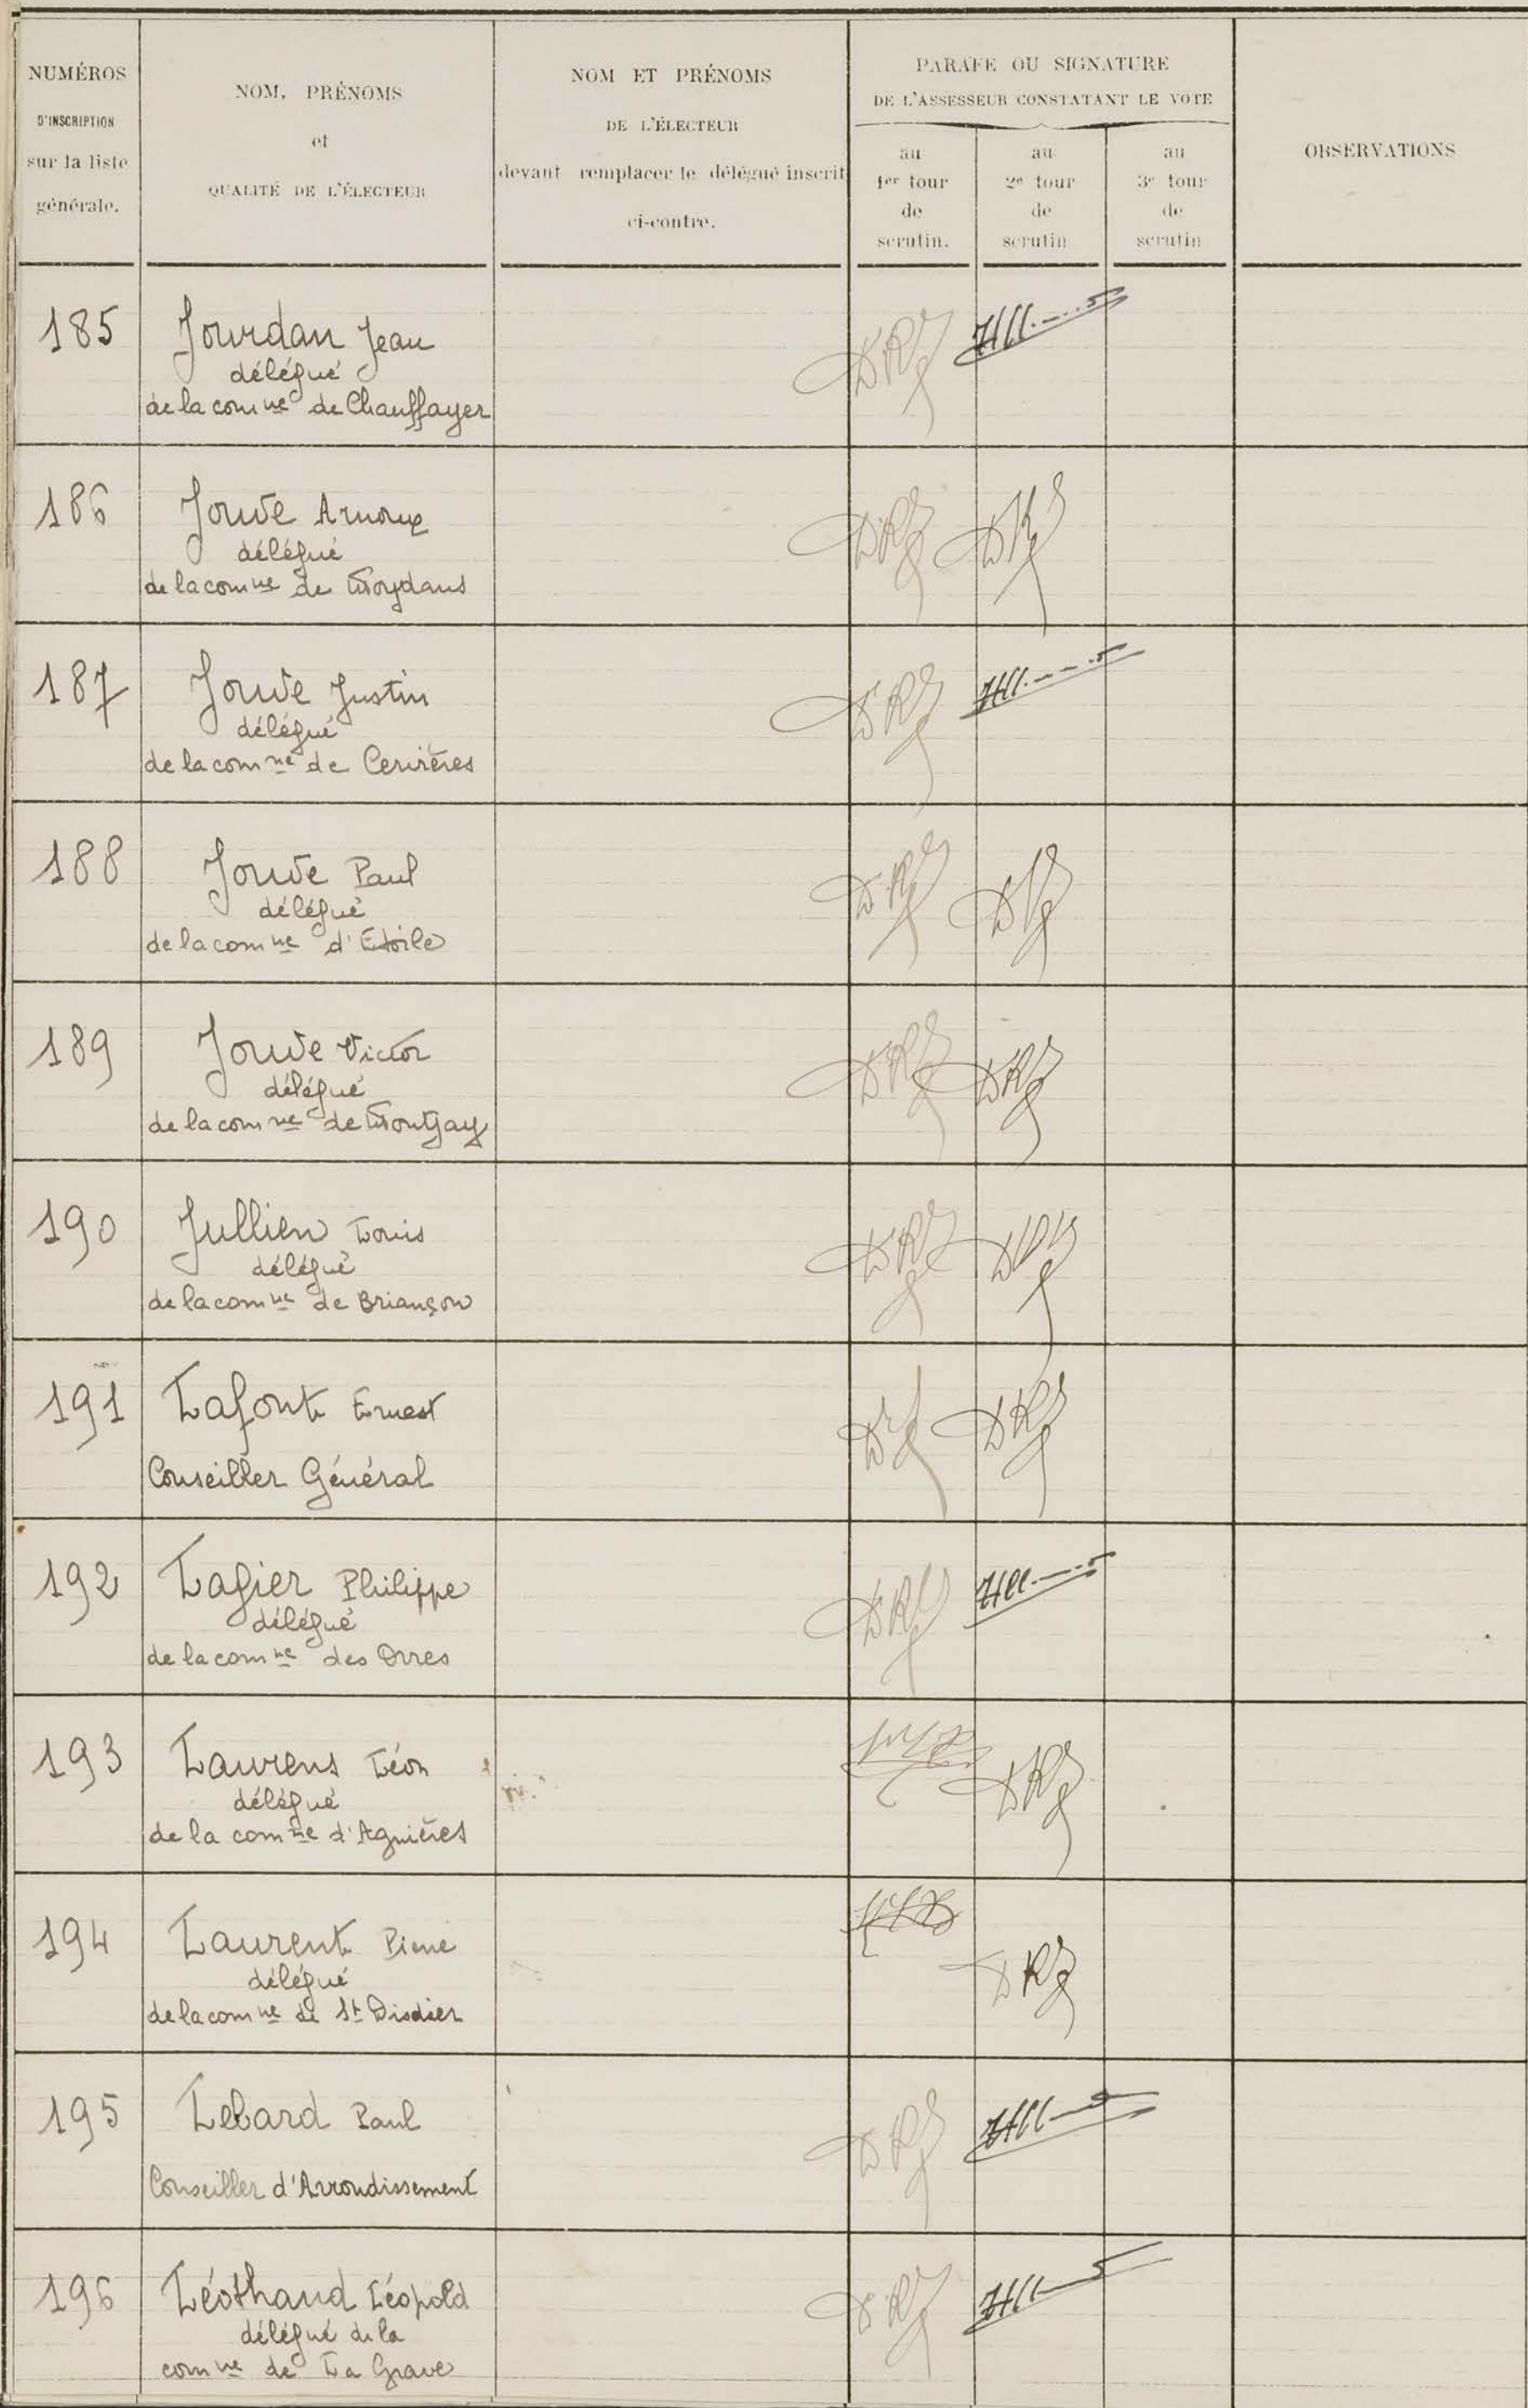 NUMÉROS
D'INSCRIPTION
sur la liste
générale.
NOM, PRÉNOMS
et
QUALITÉ DE L'ÉLECTEUR
NOM ET PRÉNOMS
DE L'ÉLECTEUR
devant remplacer le délégué inscrit
ci-contre.
PARAFE OU SIGNATURE
DE L'ASSESSEUR CONSTATANT LE VOTE
au
1er tour
de
scrutin.
au
2e tour
de
scrutin
au
3e tour
de
scrutin
OBSERVATIONS
185 Jourdan Jean
délégué
de la comne de Chauffayer
186 Jouve Arnoux
délégué
de la comne de Moydans
187 Jouve Justin
délégué
de la comne de
188 Jouve Paul
délégué
de la comne d'Etoile
189 Jouve Victor
délégué
de la comne de Montjay
190 Jullien Louis
délégué
de la comne de Briançon
191 Lafont Ernest
Conseiller Général
192 Lagier Philippe
délégué
de la comne des Orres
193 Laurens Léon
délégué
de la comne d'Agnières
194 Laurent Pierre
délégué
de la comne de St Disdier
195 Lebard Paul
Conseiller d'Arrondissement
196 Léothaud Léopold
délégué de la
comne de La Grave